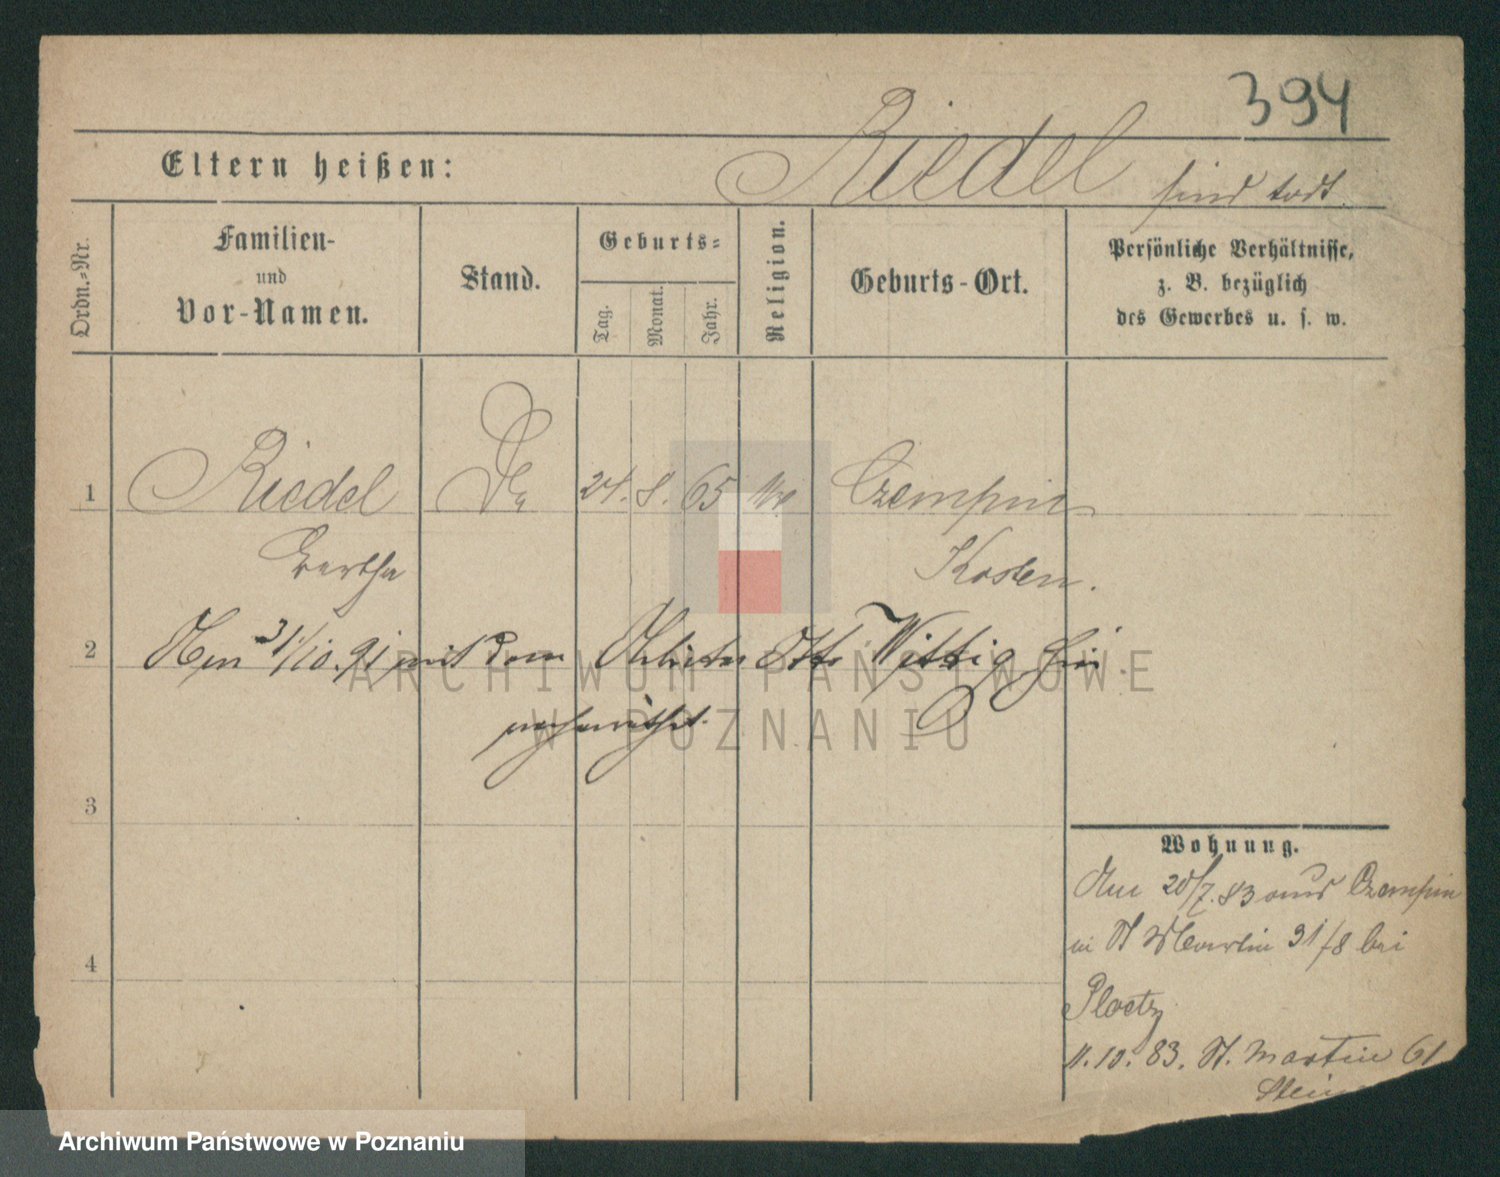 394
Eltern heißen: Riedel sind todt
Ordn.-Nr.
Familien-
und
Vor-Namen.
Stand.
Geburts-
Tag.
Monat.
Jahr.
Religion.
Geburts-Ort.
Persönliche Verhältnisse,
z. B. bezüglich
des Gewerbes u. s. w.
1 Riedel 24. 8. 65 Czempin
Bertha Kosten.
2 31/10. 91 mit dem Arbeiter Otto Wittig hier
verheirathet.
3
4
Wohnung.
20/7. 83 aus Czempin
in St Martin 31/8 bei
Ploetz
11.10. 83. St. Martin 61
ARCHIWUM PAŃSTWOWE
W POZNANIU
Archiwum Państwowe w Poznaniu